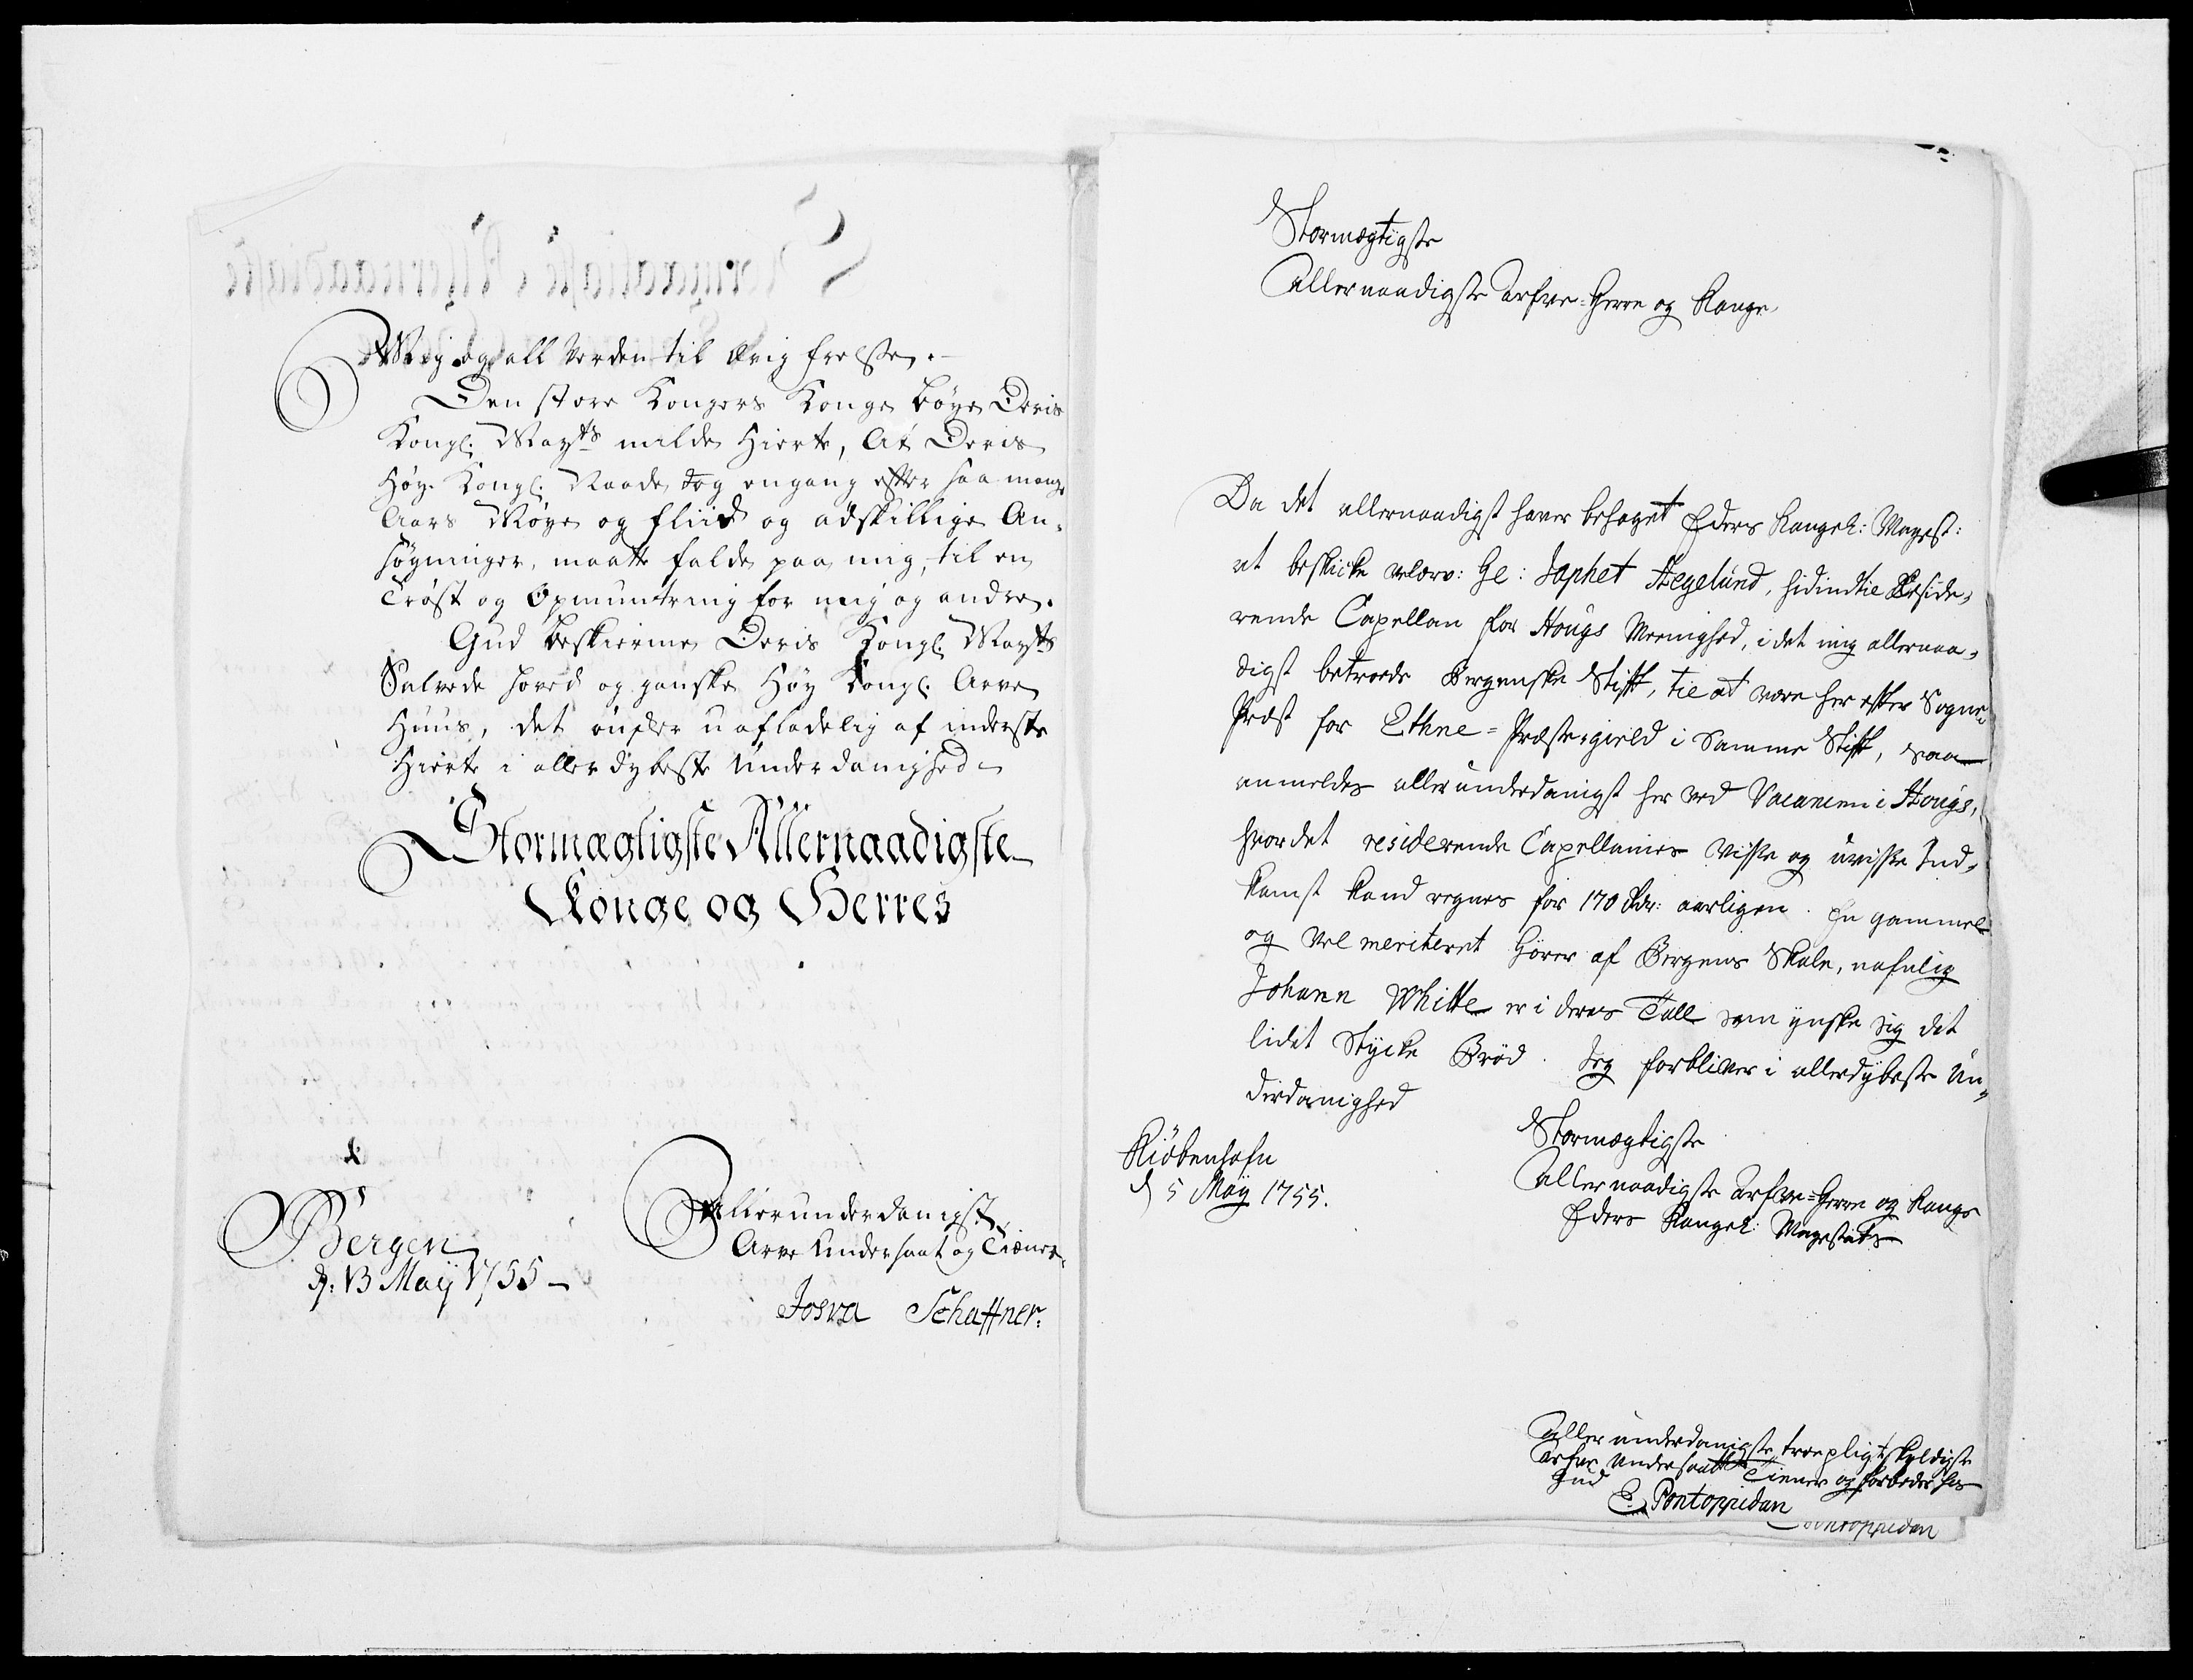 Mig og all Verden til Ævig frelsse.
Den store Kongers Konge bøye Deris
Kongl. Mayts milde Hierte, At Deris
Høy- Kongl. Naade dog engang efter saa mange
Aars Møye og fliid og adskillige An-
søgninger, maatte falde paa mig, til en
Trøst og Opmuntring for mig og andre.
Gud beskierme Deris Kongl. Mayts
Salvede hoved og ganske Høy Kongl. Arve
Huus, det ønsker uafladelig af inderste
Hierte i aller dybeste Underdanighed
Stormægtigste Allernaadigste
Konge og Herres
Bergen
d. 13 Maij 1755
Allerunderdanigst
Arve Undersaat og Tiener
Josva Schaffner.
Stormægtigste
Allernaadigste Arfve-Herre og Konge
Da det allernaadigst haver behaget Eders Kongel: Mayst:
at beskicke velærv: Hr: Japhet Hegelund, hidindtil Reside-
rende Capellan for Hougs Meenighed, i det mig allernaa-
digst betroede Bergenske Stift, til at være her efter Sogne-
Præst for Ethne-Præste-gield i samme Stift, saa
anmeldes allerunderdanigst her ved Vacancen i Hougs,
hvor det residerende Capellanies visse og uvisse Ind-
komst kand regnes for 170 Rdr: aarligen. En gammel
og vel meriteret Hører af Bergens Skole, nafnlig
Johann Whitte er i deres Tall som ynske sig det
lidet Stycke Brød. Jeg forbliver i allerdybeste Un-
derdanighed
Stormægtigste
Allernaadigste Arfve-Herre og Konge
Eders Kongel: Mayestæts
Kiöbenhafn
d 5 Maÿ 1755.
allerunderdanigste troepligtskyldigste
Arfve Undersaatt Tiener og forbeder hos
Gud
E. Pontoppidan
Pontoppidan